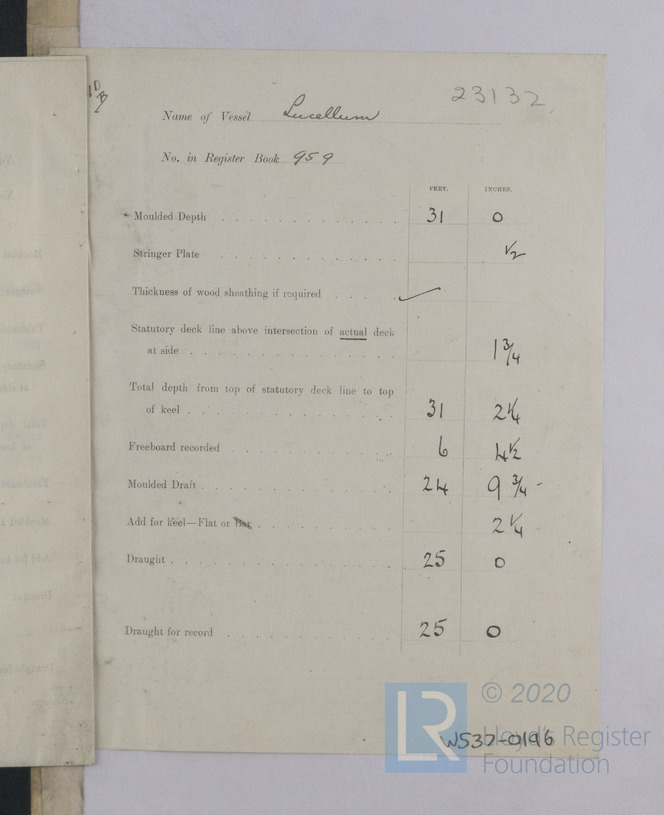 23132
Name of Vessel Lucellum
No. in Register Book 959
FEET. INCHES.
Moulded Depth . . . . . . . . . . 31 0
Stringer Plate . . . . . . . . . . ½
Thickness of wood sheathing if required . . . . ✓
Statutory deck line above intersection of actual deck
at side . . . . . . . . . . . . 1 ¾
Total depth from top of statutory deck line to top
of keel . . . . . . . . . . . . 31 2 ¼
Freeboard recorded . . . . . . . . . 6 4 ½
Moulded Draft . . . . . . . . . . 24 9 ¾ -
Add for keel—Flat or Bar . . . . . . . . 2 ¼
Draught . . . . . . . . . . . . 25 0
Draught for record . . . . . . . . . 25 0
© 2020
LR Lloyd's Register
Foundation
W537-0196